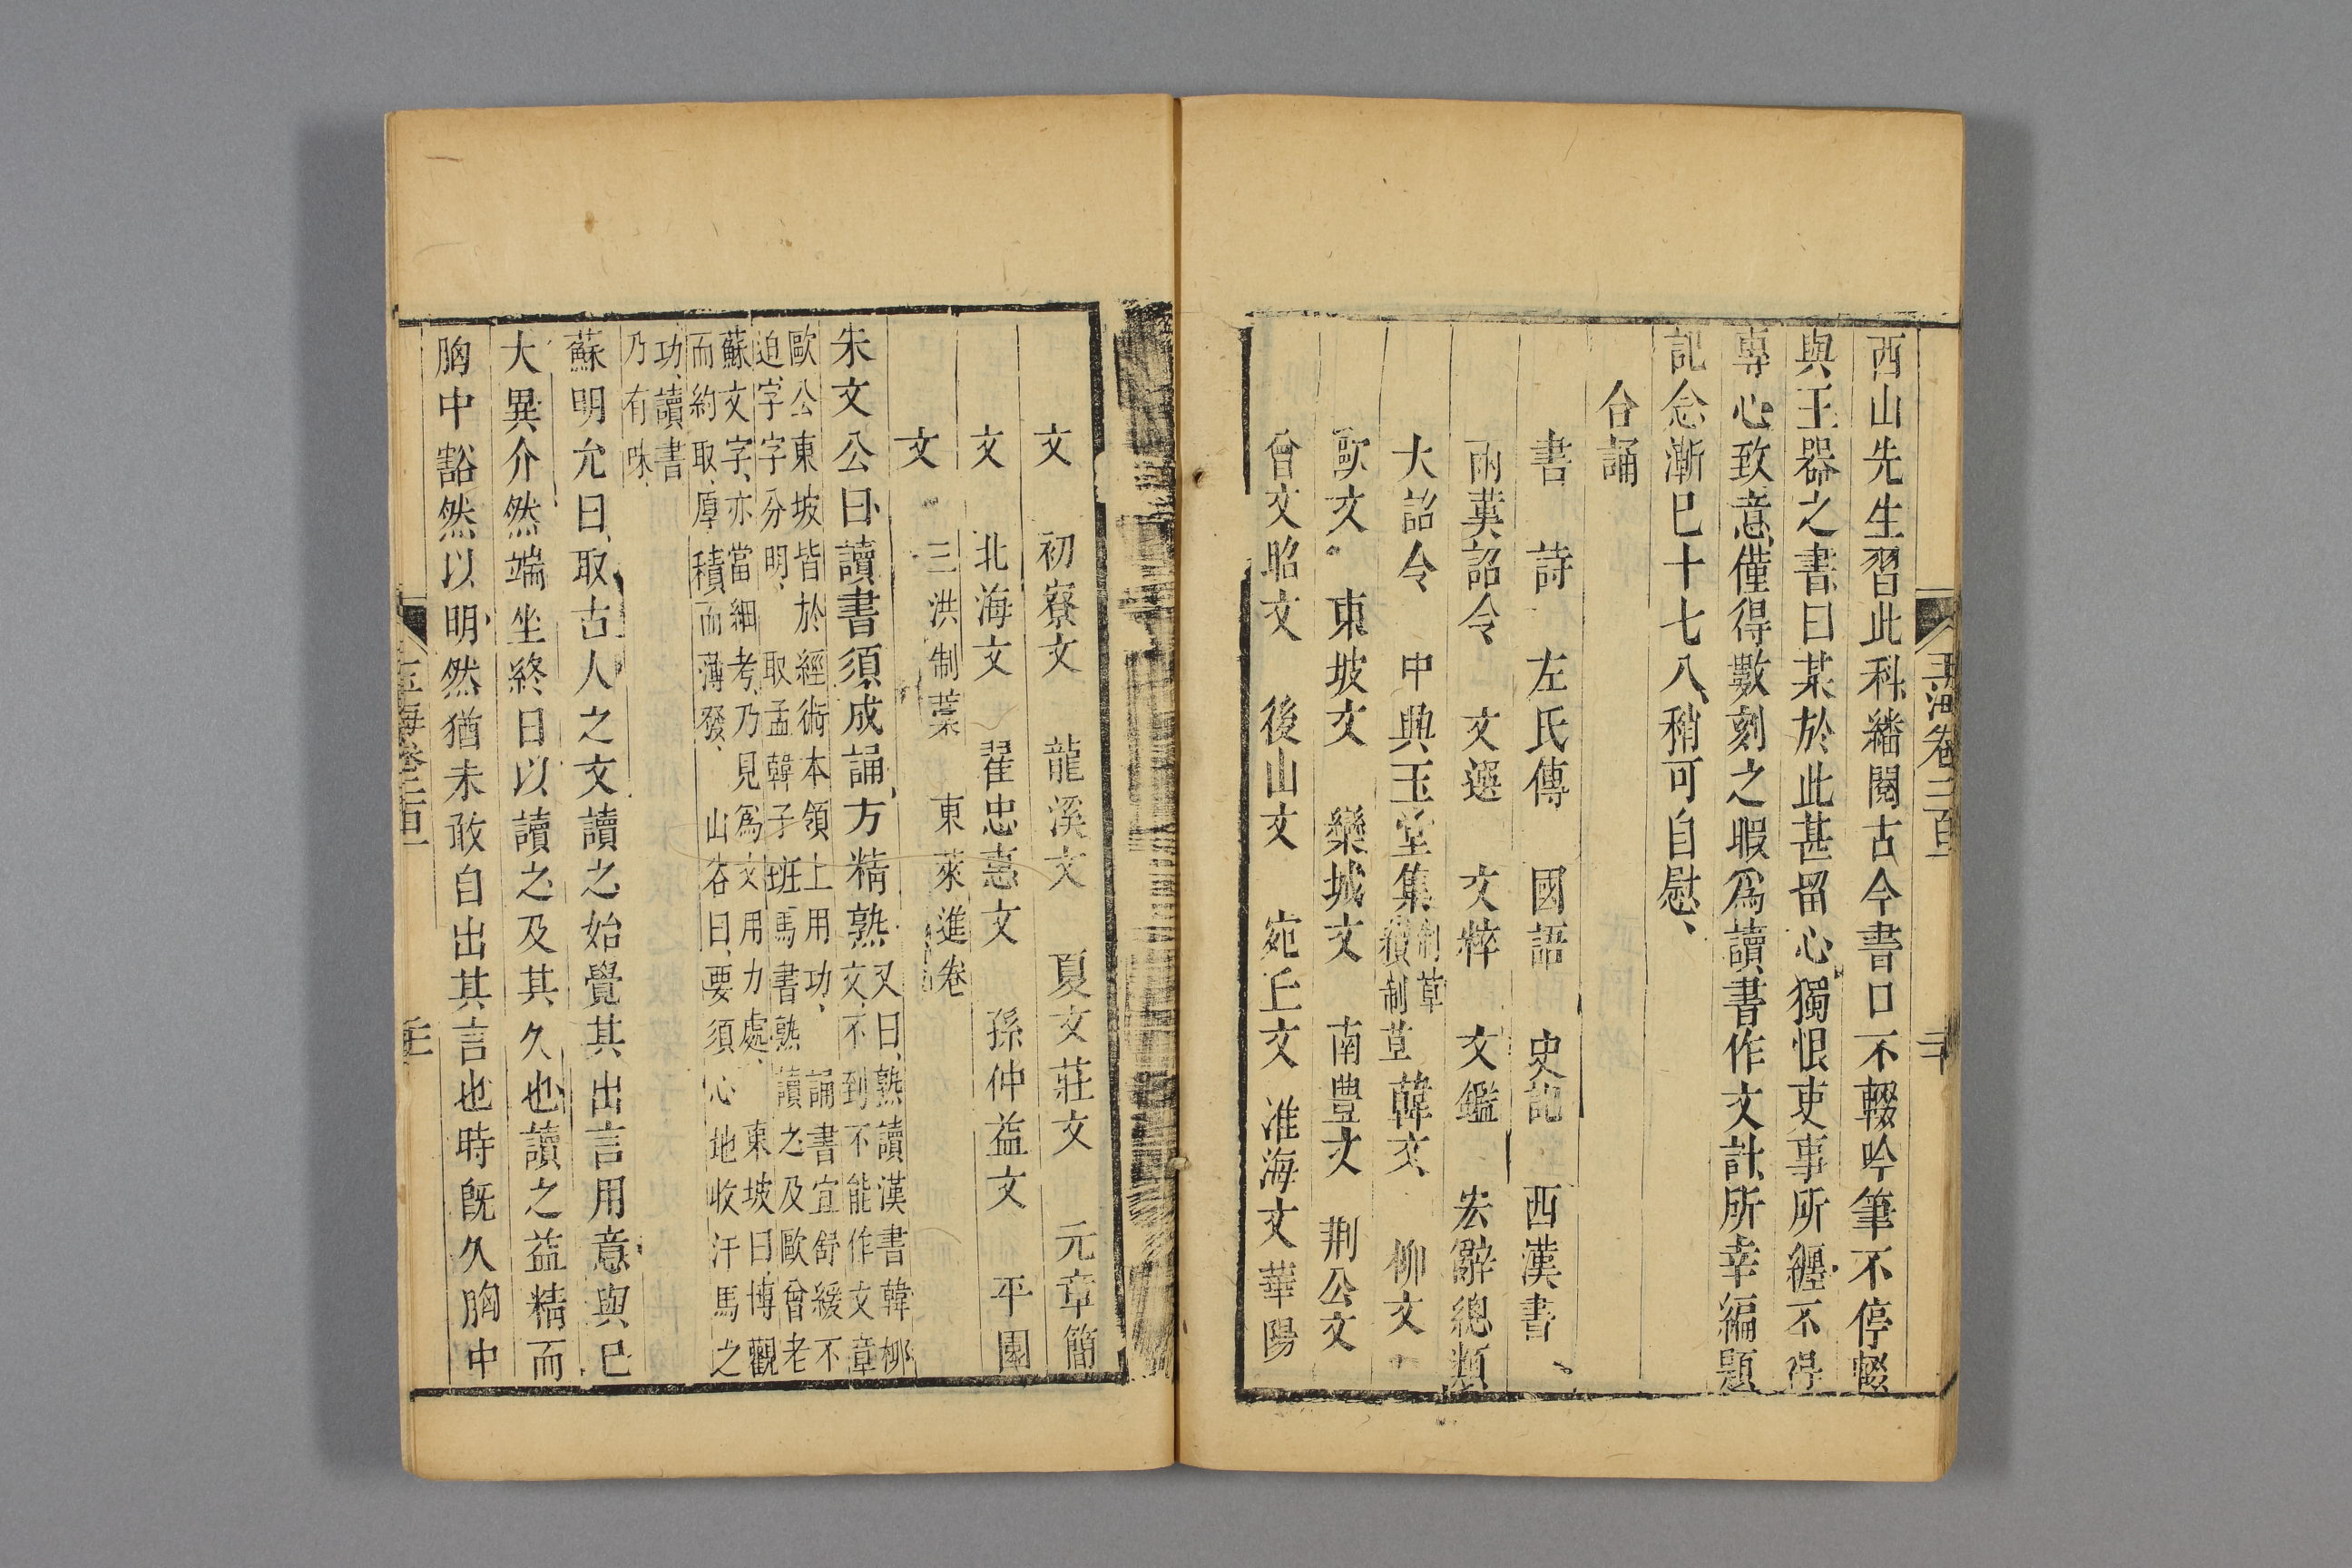 玉海卷二百一 二十
西山先生習此科繙閱古今書口不輟吟筆不停輟
與王器之書曰某於此甚留心獨恨吏事所纏不得
專心致意僅得數刻之暇爲讀書作文計所幸編題
記念漸巳十七八稍可自慰
合誦
書 詩 左氏傳 國語 史記 西漢書
兩漢詔令 文選 文粹 文鑑 宏辭總類
大詔令 中興玉堂集制草續制草 韓文 柳文
歐文 東坡文 欒城文 南豐文 荆公文
曾文昭文 後山文 宛丘文 淮海文 華陽
文 初寮文 龍溪文 夏文莊文 元章簡
文 北海文 翟忠惠文 孫仲益文 平園
文 三洪制藁 東萊進卷
朱文公曰讀書須成誦方精熟又曰熟讀漢書韓柳文不到不能作文章
歐公東坡皆於經術本領上用功 誦書宜舒緩不
迫字字分明 取孟韓子班馬書熟讀之及歐曾老
蘇文字亦當細考乃見爲文用力處 東坡曰博觀
而約取厚積而薄發 山谷曰要須心地收汗馬之
功讀書
乃有味
蘇明允曰取古人之文讀之始覺其出言用意與巳
大異介然端坐終日以讀之及其久也讀之益精而
胸中豁然以明然猶未敢自出其言也時旣久胸中
玉海卷二百一